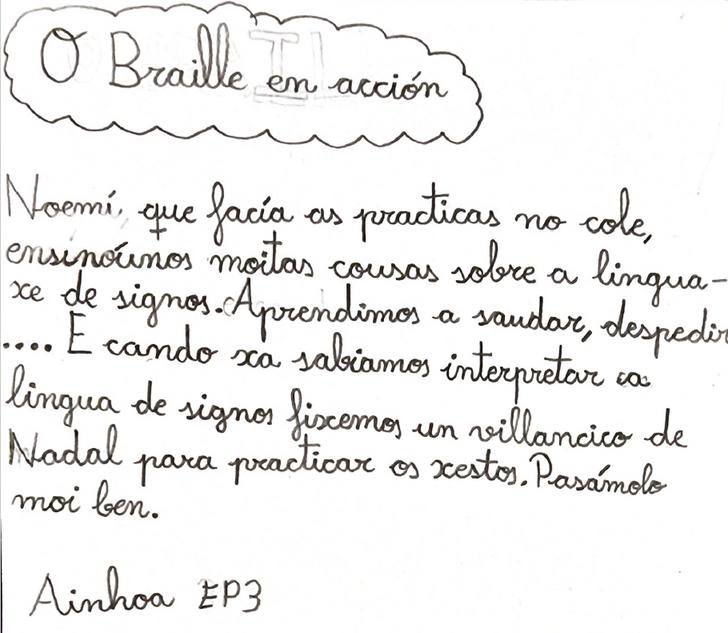 O Braille en acción
Noemí, que facía as practicas no cole,
ensinoúnos moitas cousas sobre a lingua-
xe de signos. Aprendimos a saudar, despedir
.... E cando xa sabiamos interpretar a
lingua de signos fixemos un villancico de
Nadal para practicar os xestos. Pasámolo
moi ben.
Ainhoa EP3